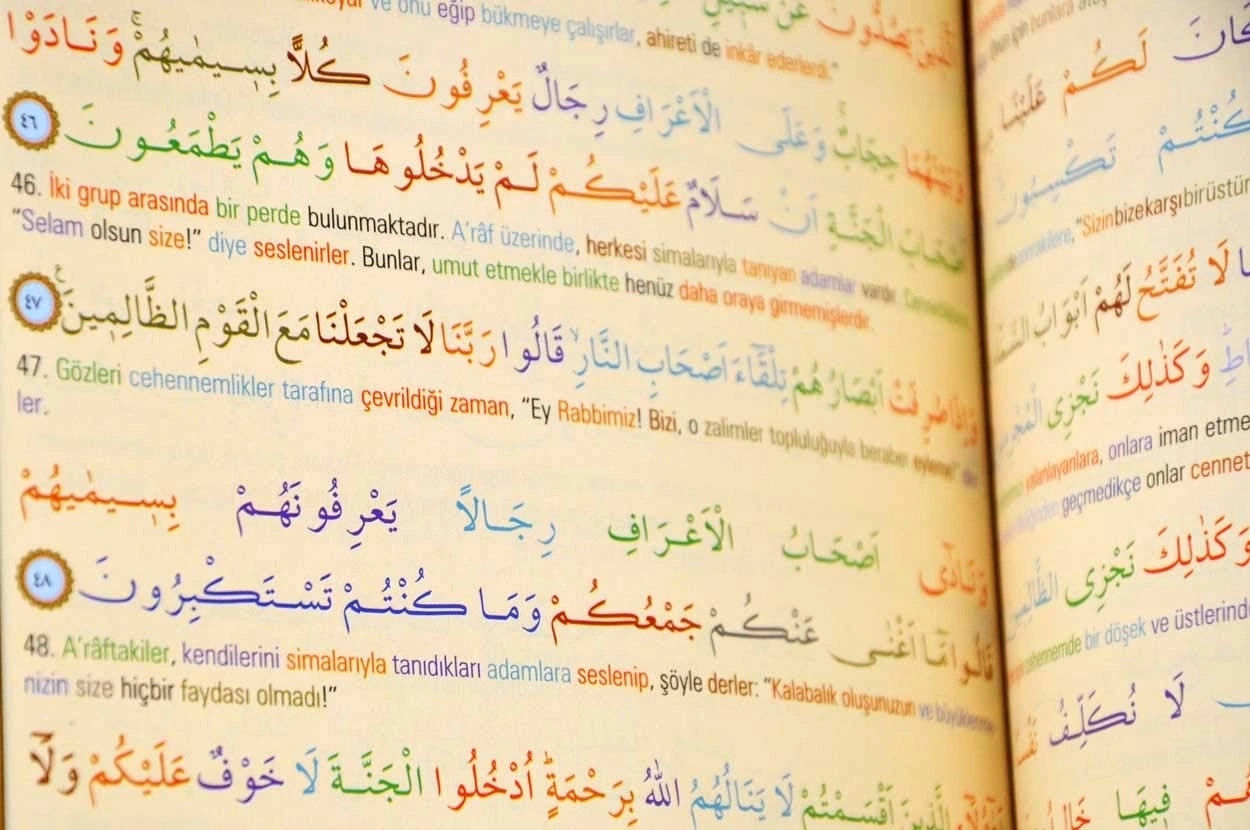 ve onu eğip bükmeye çalışırlar, ahireti de inkâr ederlerdi."
وَبَيْنَهُمَا حِجَابٌ وَعَلَى الْاَعْرَافِ رِجَالٌ يَعْرِفُونَ كُلًّا بِسٖيمٰيهُمْ وَنَادَوْا
اَصْحَابَ الْجَنَّةِ اَنْ سَلَامٌ عَلَيْكُمْ لَمْ يَدْخُلُوهَا وَهُمْ يَطْمَعُونَ ٤٦
46. İki grup arasında bir perde bulunmaktadır. A'râf üzerinde, herkesi simalarıyla tanıyan adamlar vardır.
"Selam olsun size!" diye seslenirler. Bunlar, umut etmekle birlikte henüz daha oraya girmemişlerdir.
وَاِذَا صُرِفَتْ اَبْصَارُهُمْ تِلْقَٓاءَ اَصْحَابِ النَّارِۙ قَالُوا رَبَّنَا لَا تَجْعَلْنَا مَعَ الْقَوْمِ الظَّالِمٖينَ ٤٧
47. Gözleri cehennemlikler tarafına çevrildiği zaman, "Ey Rabbimiz! Bizi, o zalimler topluluğuyla beraber eyleme!" der-
ler.
وَنَادٰٓى اَصْحَابُ الْاَعْرَافِ رِجَالًا يَعْرِفُونَهُمْ بِسٖيمٰيهُمْ
قَالُوا مَٓا اَغْنٰى عَنْكُمْ جَمْعُكُمْ وَمَا كُنْتُمْ تَسْتَكْبِرُونَ ٤٨
48. A'râftakiler, kendilerini simalarıyla tanıdıkları adamlara seslenip, şöyle derler: "Kalabalık oluşunuzun ve büyüklenme-
nizin size hiçbir faydası olmadı!"
اَهٰٓؤُ۬لَٓاءِ الَّذٖينَ اَقْسَمْتُمْ لَا يَنَالُهُمُ اللّٰهُ بِرَحْمَةٍؕ اُدْخُلُوا الْجَنَّةَ لَا خَوْفٌ عَلَيْكُمْ وَلَٓا
لَكُمْ عَلَيْنَا
كُنْتُمْ تَكْسِبُونَ
"Sizin bize karşı bir üstün
لَا تُفَتَّحُ لَهُمْ اَبْوَابُ
وَكَذٰلِكَ نَجْزِى
yalanlayanlara, onlara iman etme
geçmedikçe onlar cennet
وَكَذٰلِكَ نَجْزِى الظَّالِمٖينَ
cehennemde bir döşek ve üstlerind
لَا نُكَلِّفُ
فٖيهَا